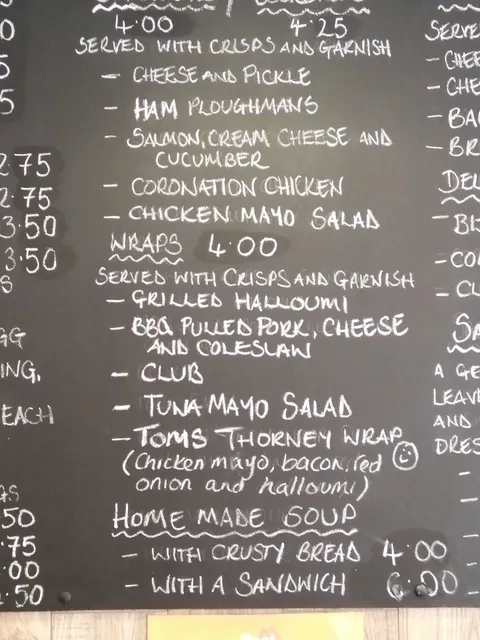 4.00 4.25
SERVED WITH CRISPS AND GARNISH
- CHEESE AND PICKLE
- HAM PLOUGHMANS
- SALMON, CREAM CHEESE AND
CUCUMBER
- CORONATION CHICKEN
- CHICKEN MAYO SALAD
WRAPS 4.00
SERVED WITH CRISPS AND GARNISH
- GRILLED HALLOUMI
- BBQ PULLED PORK, CHEESE
AND COLESLAW
- CLUB
- TUNA MAYO SALAD
- TOMS THORNEY WRAP
(Chicken mayo, bacon, red
onion and halloumi)
HOME MADE SOUP
- WITH CRUSTY BREAD 4.00
- WITH A SANDWICH 6.00
2.75
2.75
3.50
3.50
EACH
.50
.75
.00
.50
A GE
LEAVE
AND
DRES